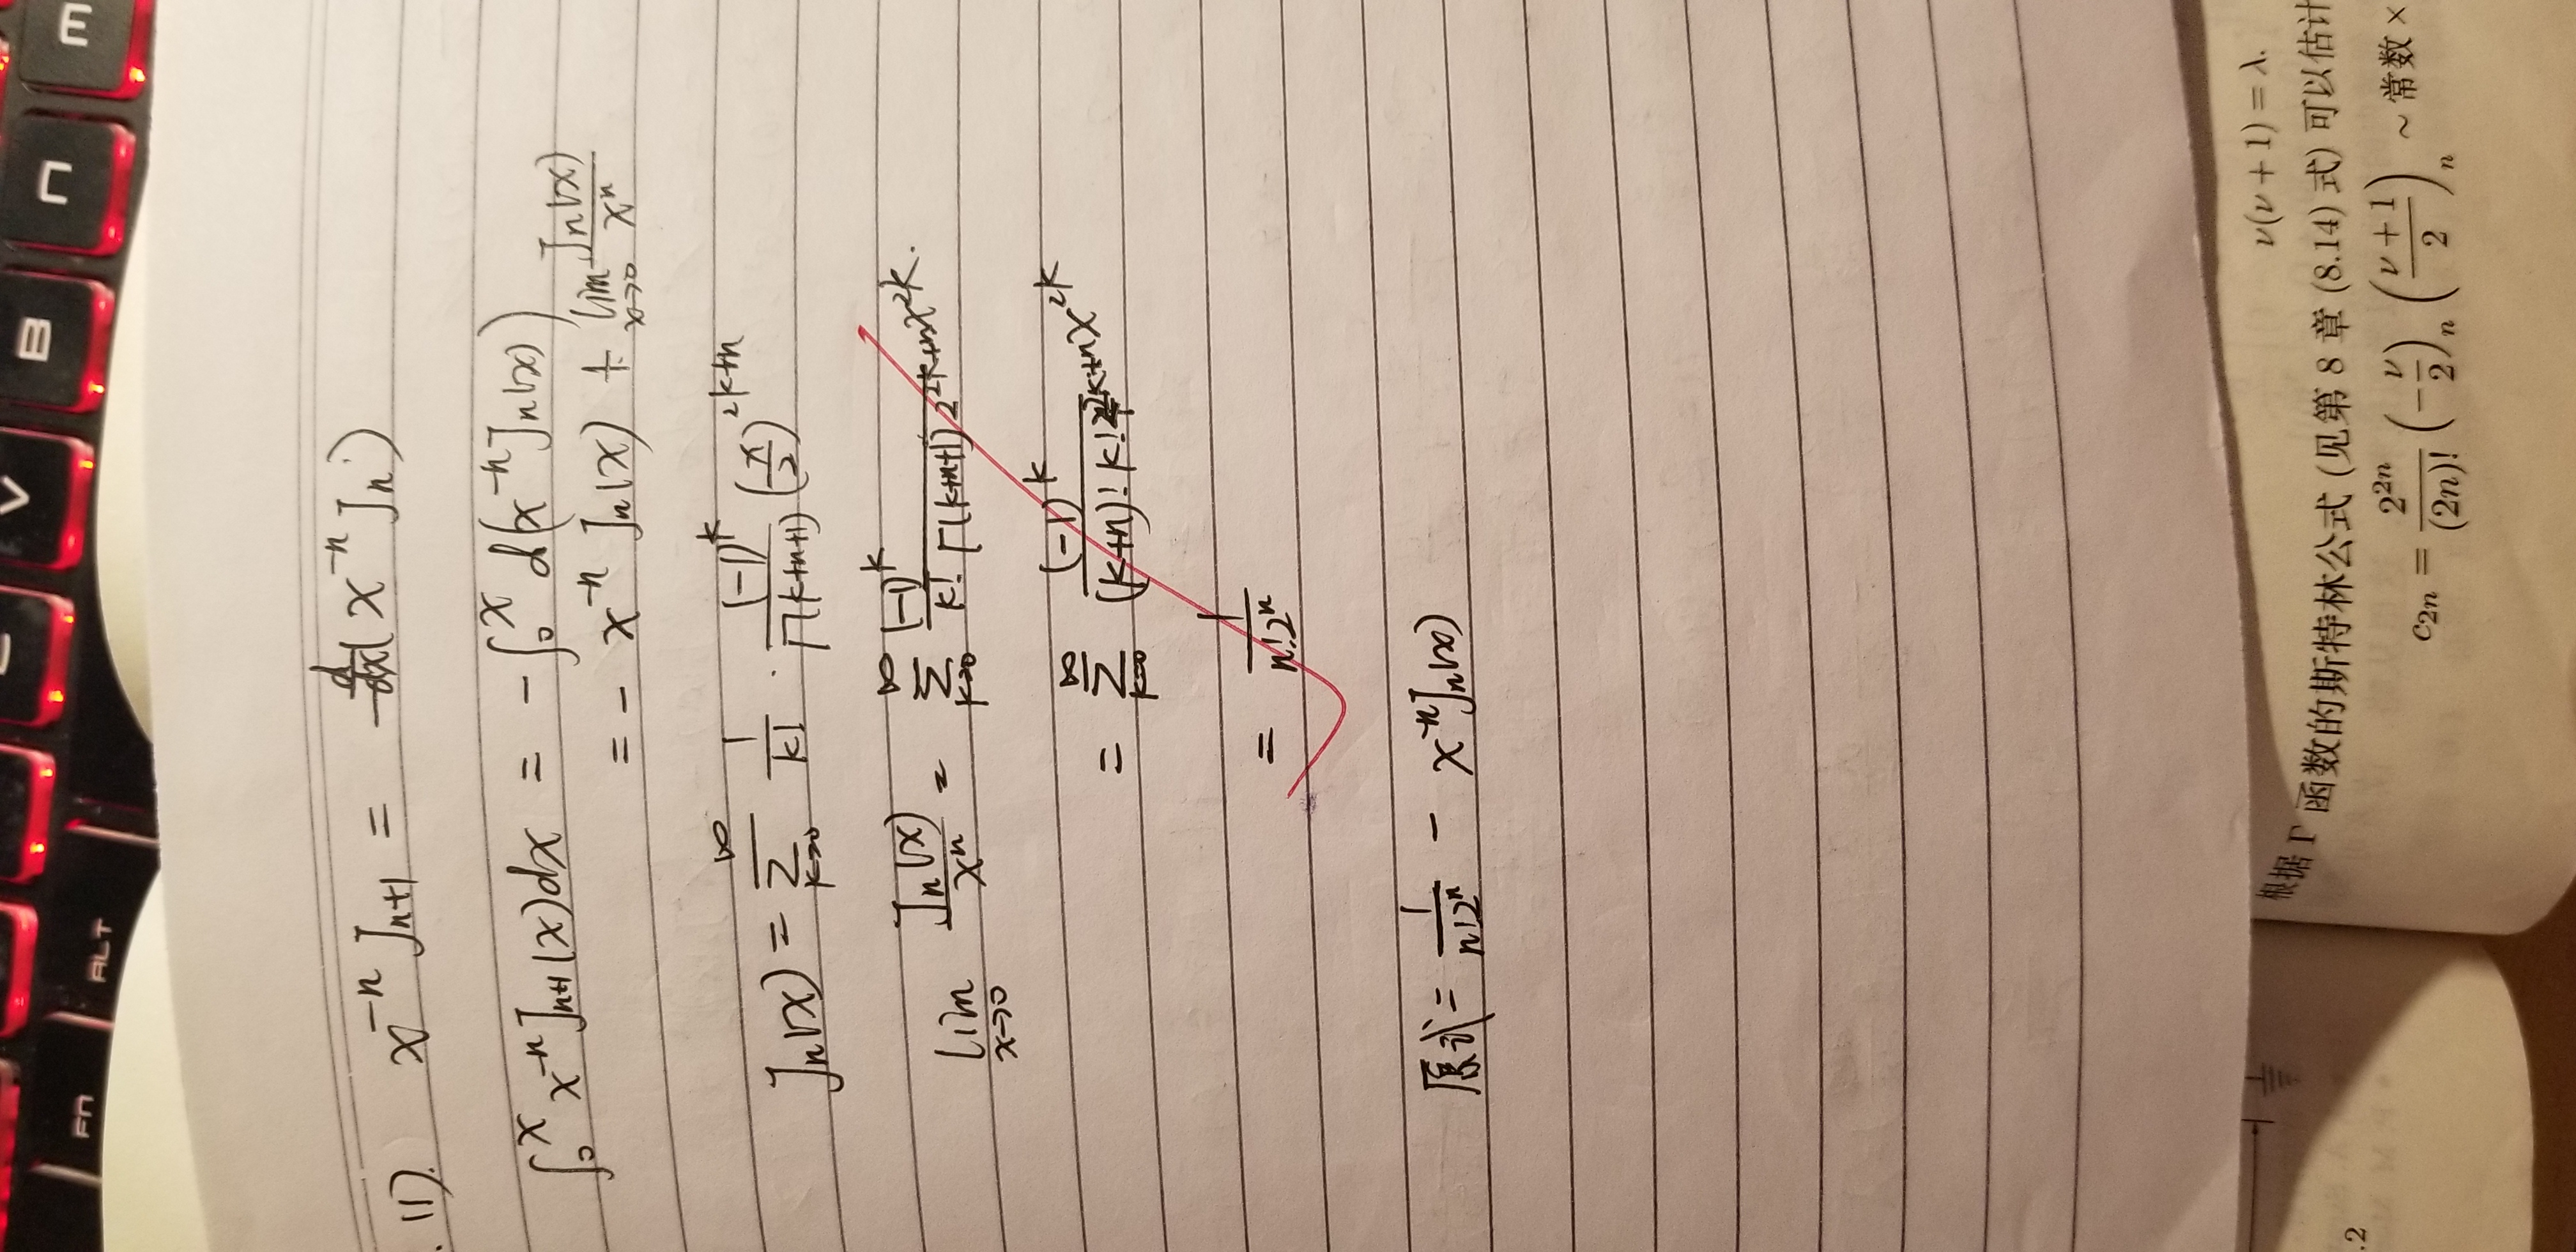 V B N M
FN ALT
. (1). x^{-n} J_{n+1} = -\frac{d}{dx}( x^{-n} J_n )
\int_0^x x^{-n} J_{n+1}(x)dx = -\int_0^x d(x^{-n} J_n(x))
= - x^{-n} J_n(x) + \lim_{x→0} \frac{J_n(x)}{x^n}
J_n(x) = \sum_{k=0}^{∞} \frac{1}{k!} · \frac{(-1)^k}{Γ(k+n+1)} (\frac{x}{2})^{2k+n}
\lim_{x→0} \frac{J_n(x)}{x^n} = \sum_{k=0}^{∞} \frac{(-1)^k}{k! Γ(k+n+1) 2^{2k+n}} x^{2k}.
= \sum_{k=0}^{∞} \frac{(-1)^k}{(k+n)! k! 2^{2k+n}} x^{2k}
= \frac{1}{n!2^n}
原式= \frac{1}{n!2^n} - x^{-n} J_n(x)
ν(ν + 1) = λ.
根据 Γ 函数的斯特林公式 (见第 8 章 (8.14) 式) 可以估计
.2
c_{2n} = \frac{2^{2n}}{(2n)!} (-\frac{ν}{2})_n (\frac{ν+1}{2})_n ~ 常数 ×